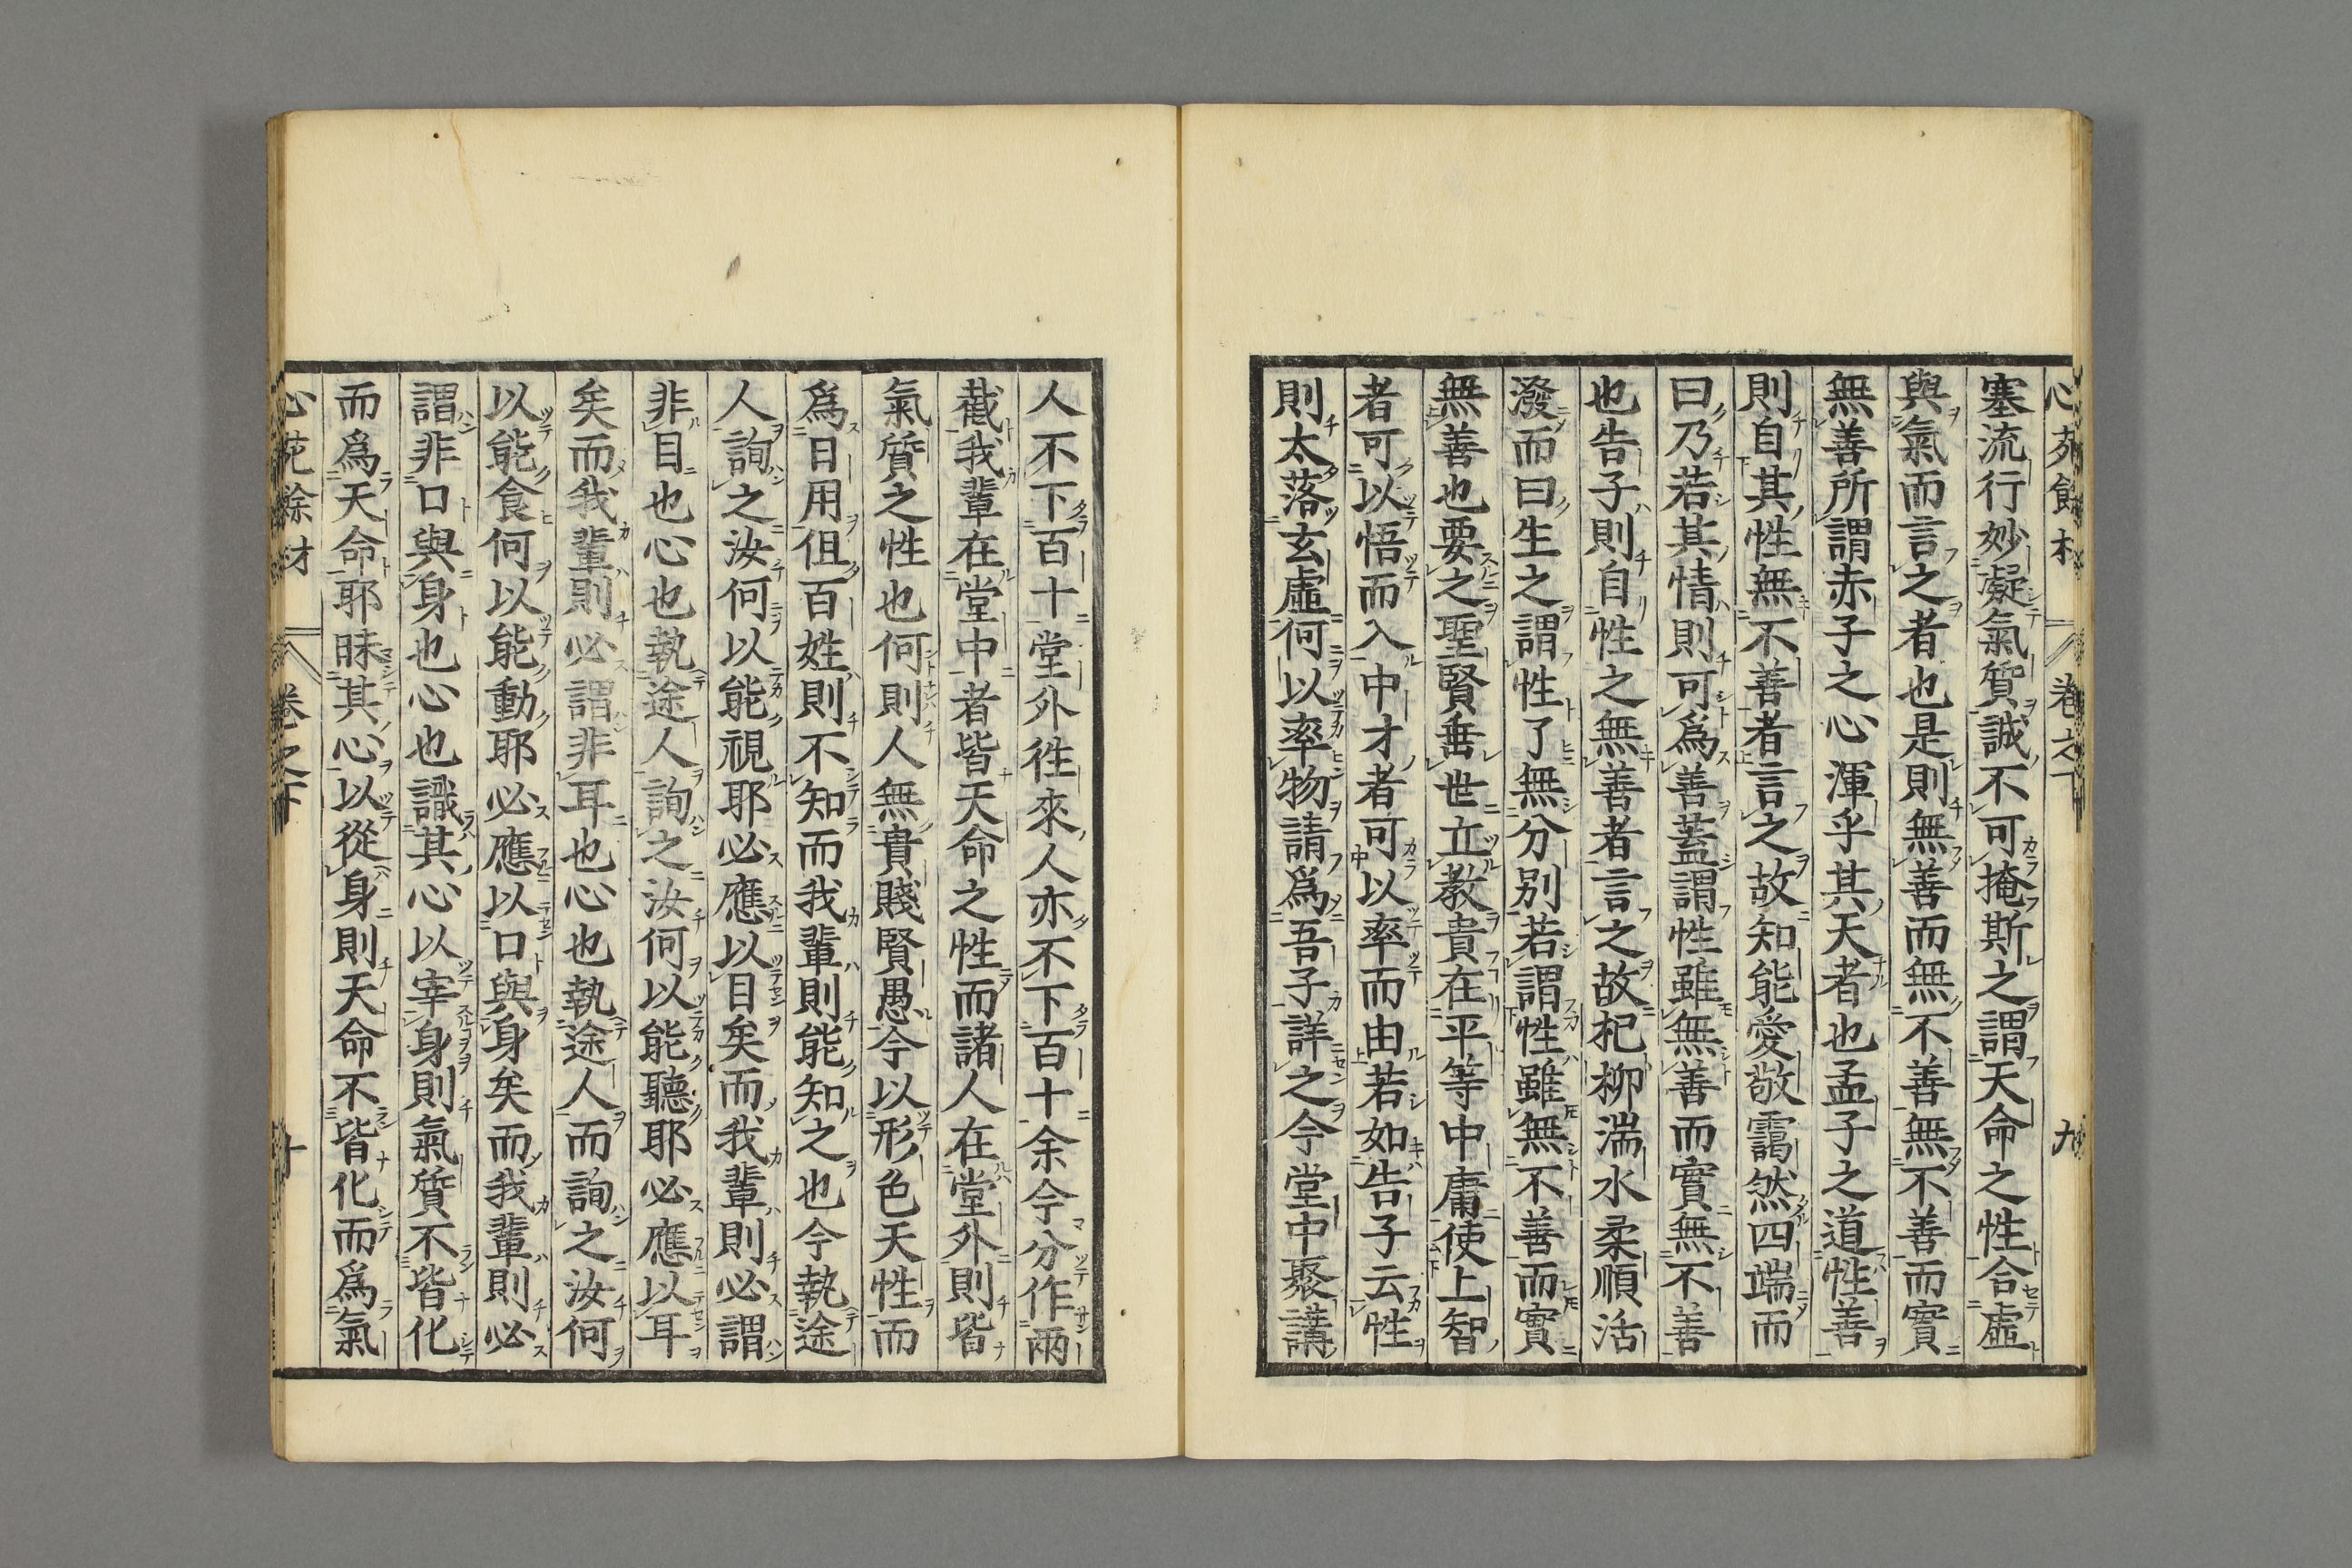 塞流行妙凝氣質誠不可掩斯之謂天命之性合虛
與氣而言之者也是則無善而無不善無不善而實
無善所謂赤子之心渾乎其天者也孟子之道性善
則自其性無不善者言之故知能愛敬靄然四端而
曰乃若其情則可爲善蓋謂性雖無善而實無不善
也告子則自性之無善者言之故杞柳湍水柔順活
潑而曰生之謂性了無分別若謂性雖無不善而實
無善也要之聖賢垂世立教貴在平等中庸使上智
者可以悟而入中才者可以率而由若如告子云性
則太落玄虛何以率物請爲吾子詳之今堂中聚講
人不下百十堂外徃來人亦不下百十余今分作兩
截我輩在堂中者皆天命之性而諸人在堂外則皆
氣質之性也何則人無貴賤賢愚今以形色天性而
爲日用但百姓則不知而我輩則能知之也今執途
人詢之汝何以能視耶必應以目矣而我輩則必謂
非目也心也執途人詢之汝何以能聽耶必應以耳
矣而我輩則必謂非耳也心也執途人而詢之汝何
以能食何以能動耶必應以口與身矣而我輩則必
謂非口與身也心也識其心以宰身則氣質不皆化
而爲天命耶昧其心以從身則天命不皆化而爲氣
心苑餘材 卷之下 十